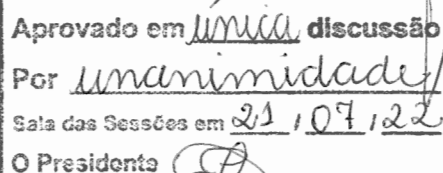 Aprovado em única discussão
Por unanimidade
Sala das Sessões em 21/07/22
O Presidente